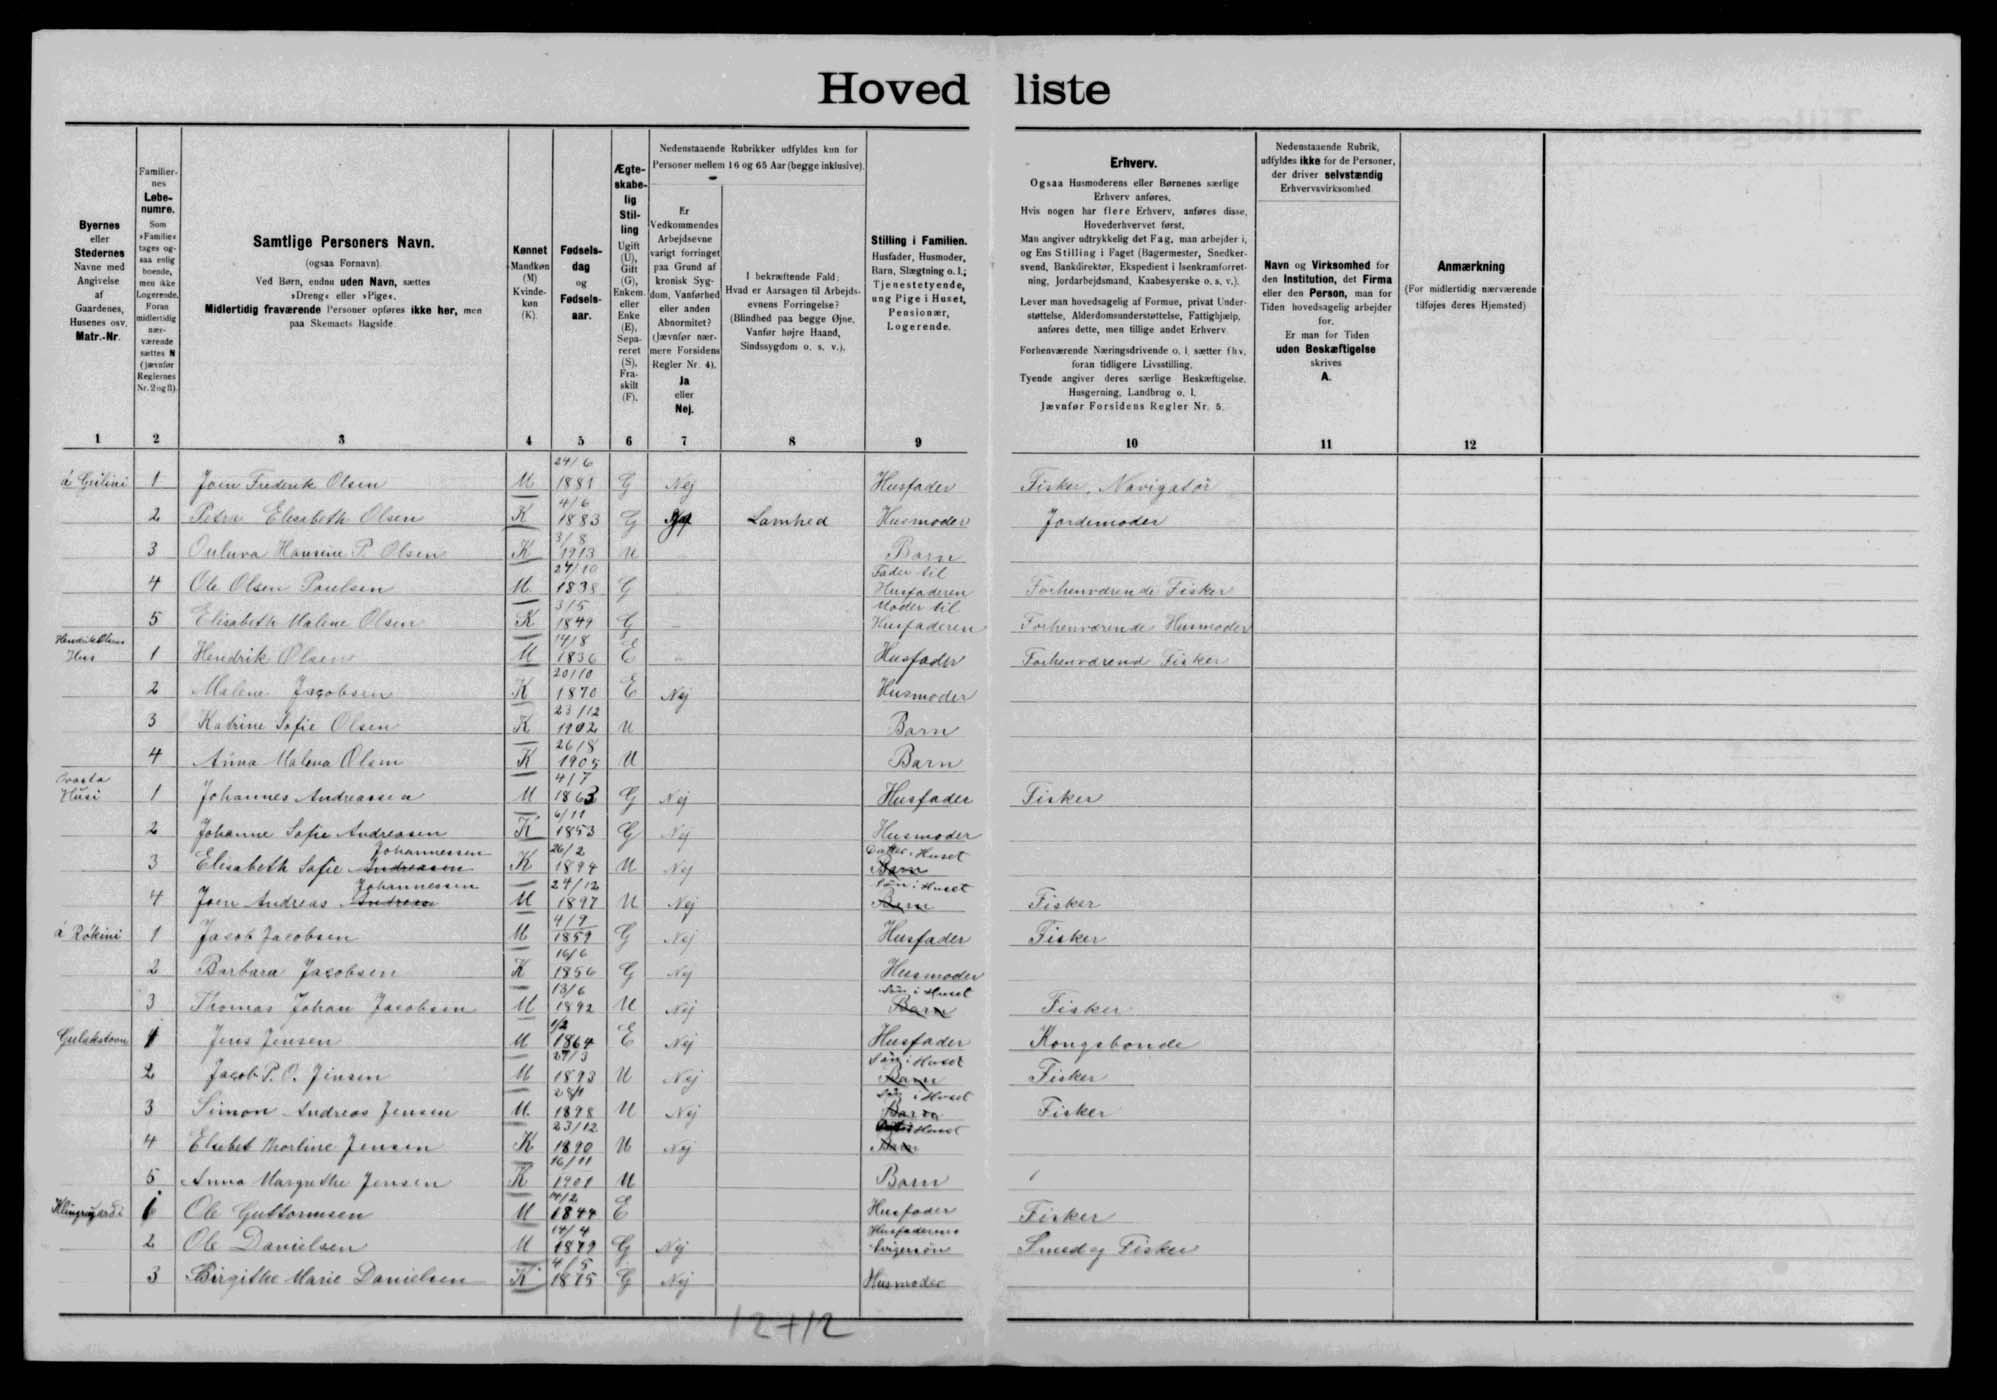 Hovedliste
Byernes
eller
Stedernes
Navne med
Angivelse
af
Gaardenes,
Husenes osv.
Matr.-Nr.
Familier-
nes
Løbe-
numre.
Som
»Familie«
tages og-
saa enlig
boende,
men ikke
Logerende.
Foran
midlertidig
nær-
værende
sættes N
(jævnfør
Reglernes
Nr. 2 og 3).
Samtlige Personers Navn.
(ogsaa Fornavn).
Ved Børn, endnu uden Navn, sættes
»Dreng« eller »Pige«.
Midlertidig fraværende Personer opføres ikke her, men
paa Skemaets Bagside.
Kønnet
Mandkøn
(M)
Kvinde-
køn
(K).
Fødsels-
dag
og
Fødsels-
aar.
Ægte-
skabe-
lig
Stil-
ling
Ugift
(U),
Gift
(G),
Enkem.
eller
Enke
(E),
Sepa-
reret
(S),
Fra-
skilt
(F).
Nedenstaaende Rubrikker udfyldes kun for
Personer mellem 16 og 65 Aar (begge inklusive).
Er
Vedkommendes
Arbejdsevne
varigt forringet
paa Grund af
kronisk Syg-
dom, Vanførhed
eller anden
Abnormitet?
(Jævnfør nær-
mere Forsidens
Regler Nr. 4).
Ja
eller
Nej.
I bekræftende Fald:
Hvad er Aarsagen til Arbejds-
evnens Forringelse?
(Blindhed paa begge Øjne,
Vanfør højre Haand,
Sindssygdom o. s. v.).
Stilling i Familien.
Husfader, Husmoder,
Barn, Slægtning o. l.;
Tjenestetyende,
ung Pige i Huset,
Pensionær,
Logerende.
Erhverv.
Ogsaa Husmoderens eller Børnenes særlige
Erhverv anføres.
Hvis nogen har flere Erhverv, anføres disse,
Hovederhvervet først.
Man angiver udtrykkelig det Fag, man arbejder i,
og Ens Stilling i Faget (Bagermester, Snedker-
svend, Bankdirektør, Ekspedient i Isenkramforret-
ning, Jordarbejdsmand, Kaabesyerske o. s. v.).
Lever man hovedsagelig af Formue, privat Under-
støttelse, Alderdomsunderstøttelse, Fattighjælp,
anføres dette, men tillige andet Erhverv.
Forhenværende Næringsdrivende o. l. sætter fhv.
foran tidligere Livsstilling.
Tyende angiver deres særlige Beskæftigelse,
Husgerning, Landbrug o. l.
Jævnfør Forsidens Regler Nr. 5.
Nedenstaaende Rubrik,
udfyldes ikke for de Personer,
der driver selvstændig
Erhvervsvirksomhed.
Navn og Virksomhed for
den Institution, det Firma
eller den Person, man for
Tiden hovedsagelig arbejder
for.
Er man for Tiden
uden Beskæftigelse
skrives
A.
Anmærkning
(For midlertidig nærværende
tilføjes deres Hjemsted)
1 2 3 4 5 6 7 8 9 10 11 12
á Geilini 1 Joen Frederik Olsen M 24/6 1881 G Nej Husfader Fisker, Navigatør
2 Petra Elisabeth Olsen K 4/6 1883 G Lamhed Husmoder Jordemoder
3 Hansine P. Olsen K 3/8 1913 U Barn
4 Ole Olsen Poulsen M 24/10 1838 G Fader til Husfaderen Forhenværende Fisker
5 Elisabeth Malene Olsen K 3/5 1849 G Moder til Husfaderen Forhenværende Husmoder
Hendrik Olsens Hus 1 Hendrik Olsen M 14/8 1836 E Husfader Forhenværend Fisker
2 Malene Jacobsen K 20/10 1870 E Nej Husmoder
3 Katrine Sofie Olsen K 23/12 1902 U Barn
4 Anna Malena Olsen K 26/8 1905 U Barn
Húsi 1 Johannes Andreassen M 4/7 1863 G Nej Husfader Fisker
2 Johanne Sofie Andreasen K 6/11 1853 G Nej Husmoder
3 Elisabeth Sofie Andreasen Johannessen K 26/2 1894 U Nej Barn Datter i Huset
4 Joen Andreas Johannessen M 24/12 1897 U Nej Barn Søn i Huset Fisker
á Rókini 1 Jacob Jacobsen M 4/9 1859 G Nej Husfader Fisker
2 Barbara Jacobsen K 16/6 1856 G Nej Husmoder
3 Thomas Johan Jacobsen M 13/6 1892 U Nej Barn Søn i Huset Fisker
1 Jens Jensen M 1/2 1864 E Nej Husfader Kongsbonde
2 Jacob P. O. Jensen M 27/3 1893 U Nej Barn Søn i Huset Fisker
3 Simon Andreas Jensen M 28/1 1898 U Nej Barn Søn i Huset Fisker
4 Elsebet Jensen K 23/12 1890 U Nej Barn Huset
5 Anna Margrethe Jensen K 16/11 1901 U Barn
1 Ole Guttormsen M 14/2 1844 E Husfader Fisker
2 Ole Danielsen M 14/4 1879 G Nej Husfaderens Svigersøn Smed og Fisker
3 Birgithe Marie Danielsen K 4/5 1875 G Nej Husmoder
12+12